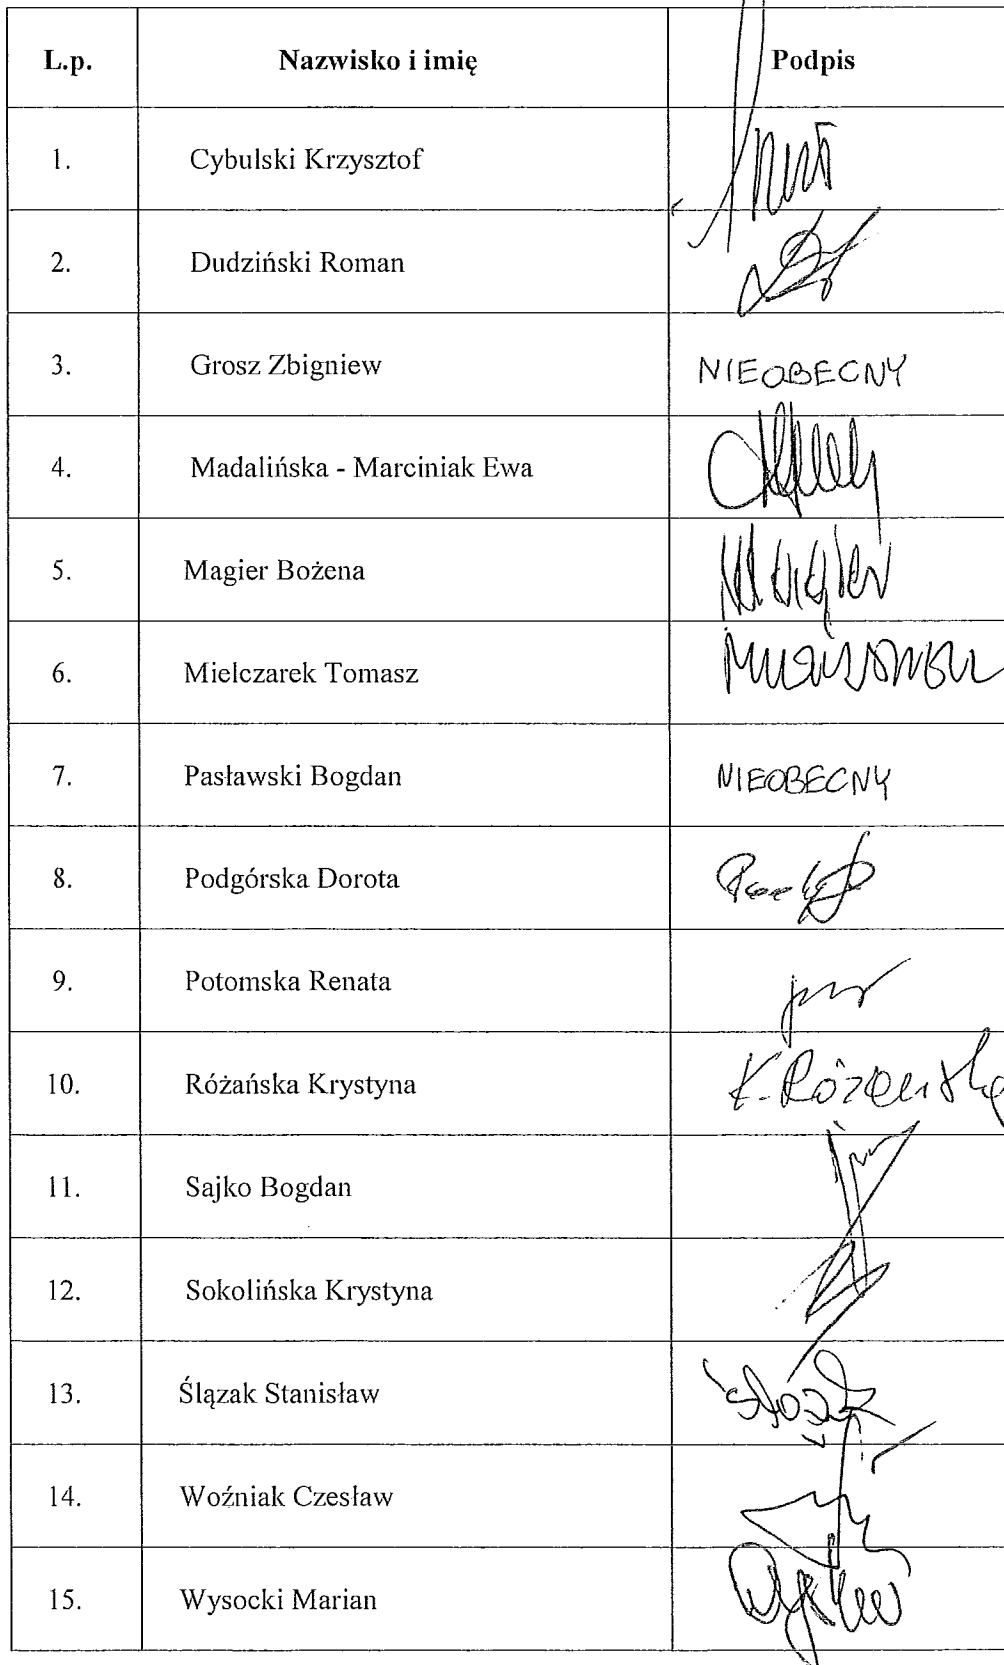 L.p. Nazwisko i imię Podpis
1. Cybulski Krzysztof
2. Dudziński Roman
3. Grosz Zbigniew NIEOBECNY
4. Madalińska - Marciniak Ewa
5. Magier Bożena Magier
6. Mielczarek Tomasz
7. Pasławski Bogdan NIEOBECNY
8. Podgórska Dorota
9. Potomska Renata
10. Różańska Krystyna K. Różańska
11. Sajko Bogdan
12. Sokolińska Krystyna
13. Ślązak Stanisław
14. Woźniak Czesław
15. Wysocki Marian